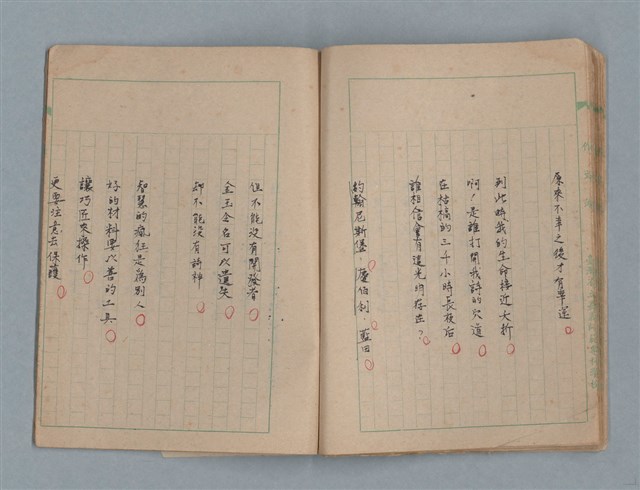 原來不幸之後才有幸運
到此時我的生命接近大折
啊！是誰打開我詩的穴道
在枯槁的三千小時長夜后
誰相信會有這光明存在？
約翰尼斯堡．薩伯利．藍田
但不能沒有開發者
金玉念名可以遺失
卻不能沒有詩粹
智慧的瘋狂是為別人
好的材料要以善的工具
讓巧匠來操作
更要注意去保護